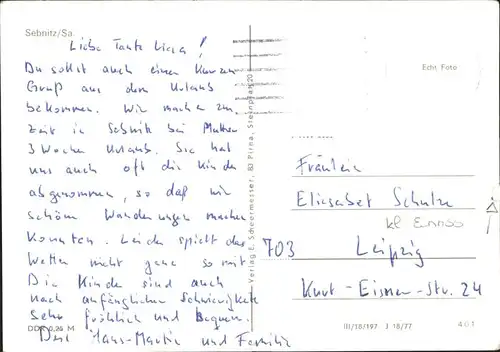 Sebnitz/Sa
Liebe Tante Liesa!
Du sollst auch einen kurzen
Gruß aus dem Urlaub
bekommen. Wir machen zur
Zeit in Sebnitz bei Mutter
3 Wochen Urlaub. Sie hat
uns auch oft die Kinder
abgenommen, so daß wir
schöne Wanderungen machen
konnten. Leider spielt das
Wetter nicht ganz so mit
Die Kinder sind auch
nach anfänglichen Schwierigkeiten
sehr fröhlich und
Dein Hans-Martin und Familie
DDR 0,25 M
Verlag E. Scheermesser, 83 Pirna, Steinplatz 20
Echt Foto
Fräulein
Eliesabet Schulze
703 Leipzig
Kurt-Eisner-Str. 24
III/18/197 J 18/77